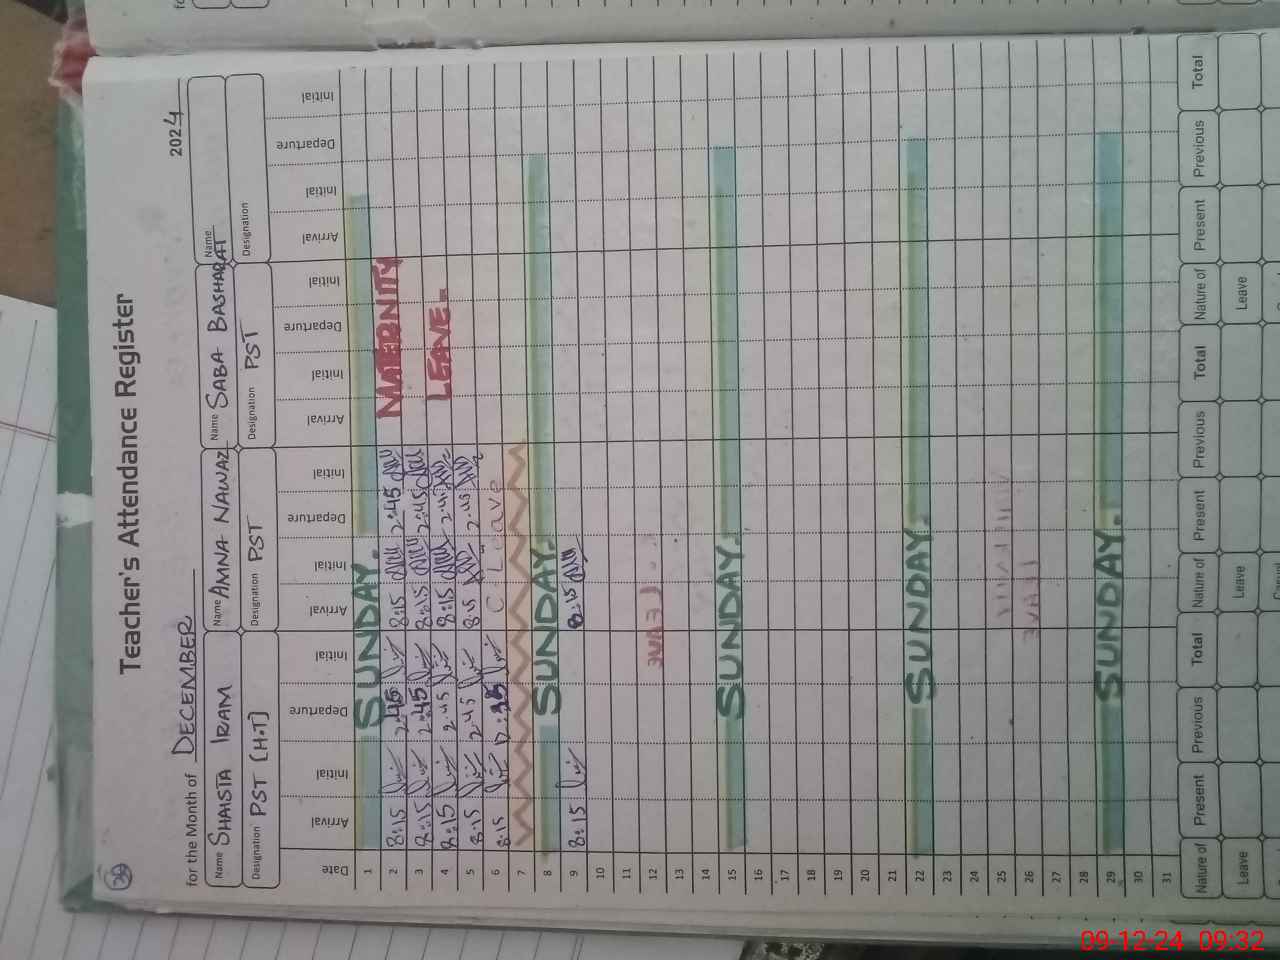 Teacher's Attendance Register
39
for the Month of DECEMBER 2024
Name SHAISTA IRAM Name AMNA NAWAZ Name SABA BASHARAT Name
Designation PST (H.T) Designation PST Designation PST Designation
Date Arrival Initial Departure Initial Arrival Initial Departure Initial Arrival Initial Departure Initial Arrival Initial Departure Initial
1 SUNDAY.
2 8:15 2:45 8:15 2:45 MATERNITY
3 8:15 2:45 8:15 2:45
4 8:15 2:45 8:15 2:45 LEAVE.
5 8:15 2:45 8:15 2:45
6 8:15 C. Leave
7
8 SUNDAY.
9 8:15 8:15
10
11
12
13
14
15 SUNDAY.
16
17
18
19
20
21
22 SUNDAY.
23
24
25
26
27
28
29 SUNDAY.
30
31
Nature of Present Previous Total Nature of Present Previous Total Nature of Present Previous Total
Leave Leave Leave
09-12-24 09:32